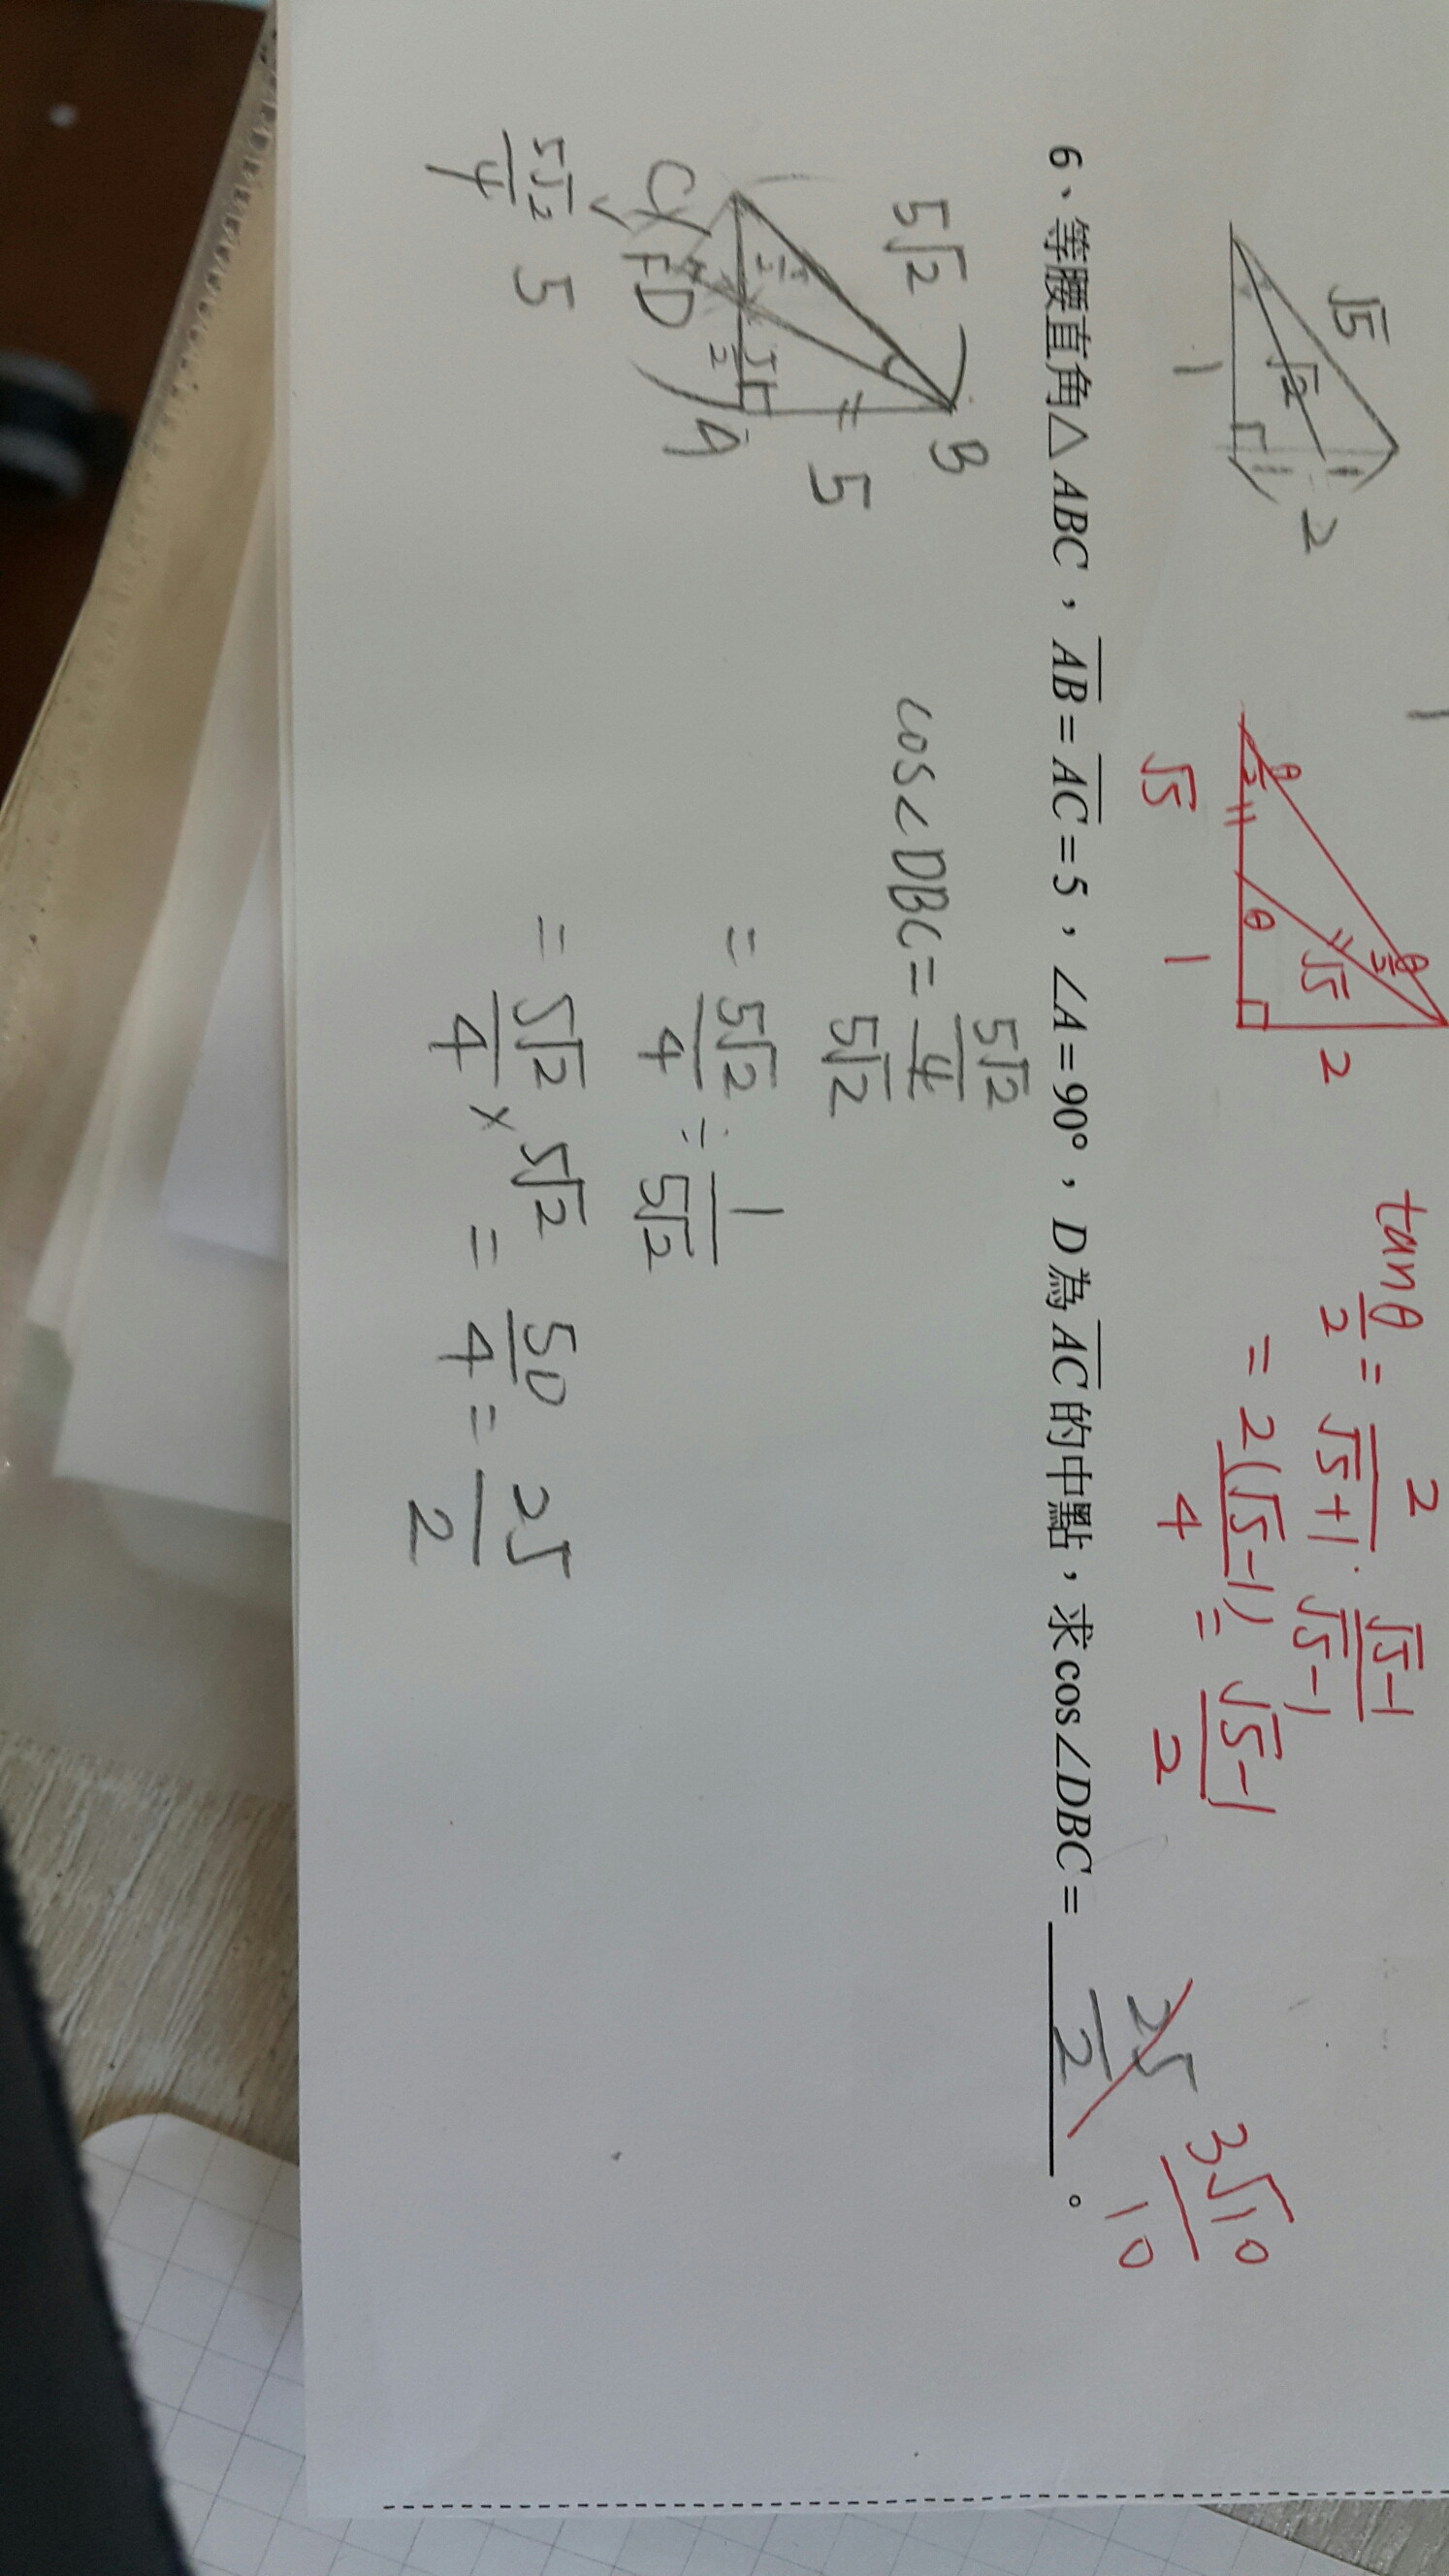 1
√5
√2
1
2
θ/2
θ/2
θ
√5
√5
1
2
tan θ/2 = 2/(√5+1) · (√5-1)/(√5-1)
= 2(√5-1)/4 = (√5-1)/2
6、等腰直角△ABC，AB=AC=5，∠A=90°，D為AC的中點，求cos∠DBC= 25/2 。
3√10/10
5√2
B
5
C
F
D
A
5
5√2/4
cos∠DBC = (5√2/4)/5√2
= 5√2/4 ÷ 1/5√2
= 5√2/4 × 5√2 = 50/4 = 25/2